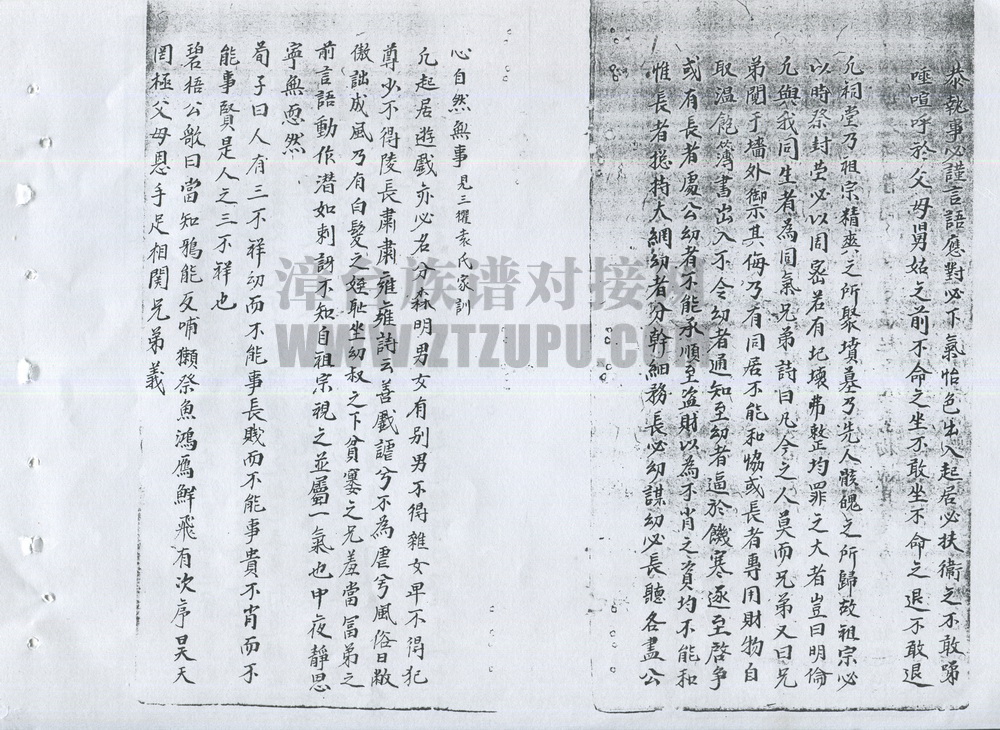 恭執事必謹言語應對必下氣怡色出入起居必扶衛之不敢踢
唾喧呼於父母舅姑之前不命之坐不敢坐不命之退不敢退
凡祠堂乃祖宗精爽之所聚墳墓乃先人骸魄之所歸故祖宗必
以時祭封塋必以周密若有圮壞弗整均罪之大者豈曰明倫
凡與我同生者為同氣兄弟詩曰凡今之人莫而兄弟又曰兄
弟鬩于墻外御其侮乃有同居不能和恊或長者專用財物自
取温飽簿書出入不令幼者通知至幼者逼於饑寒逐至啓争
或有長者處公幼者不能承順至盗財以為不肖之資均不能和
惟長者揔持大綱幼者分幹細務長必幼謀幼必長聽各盡公
心自然無事 見三擢袁氏家訓
凡起居遊戲亦必名分森明男女有别男不得雜女卑不得犯
尊少不得陵長肅肅雍雍詩云善戲謔兮不為虐兮風俗日敝
傲詘成風乃有白髮之姪耻坐幼叔之下貧窶之兄羞當冨弟之
前言語動作潜如刺訝不知自祖宗視之並屬一氣也中夜靜思
寧無恧然
荀子曰人有三不祥幼而不能事長賤而不能事貴不肖而不
能事賢是人之三不祥也
碧梧公敬曰當知鴉能反哺獺祭魚鴻雁鮮飛有次序昊天
罔極父母恩手足相関兄弟義
漳台族谱对接网
WWW.ZTZUPU.COM